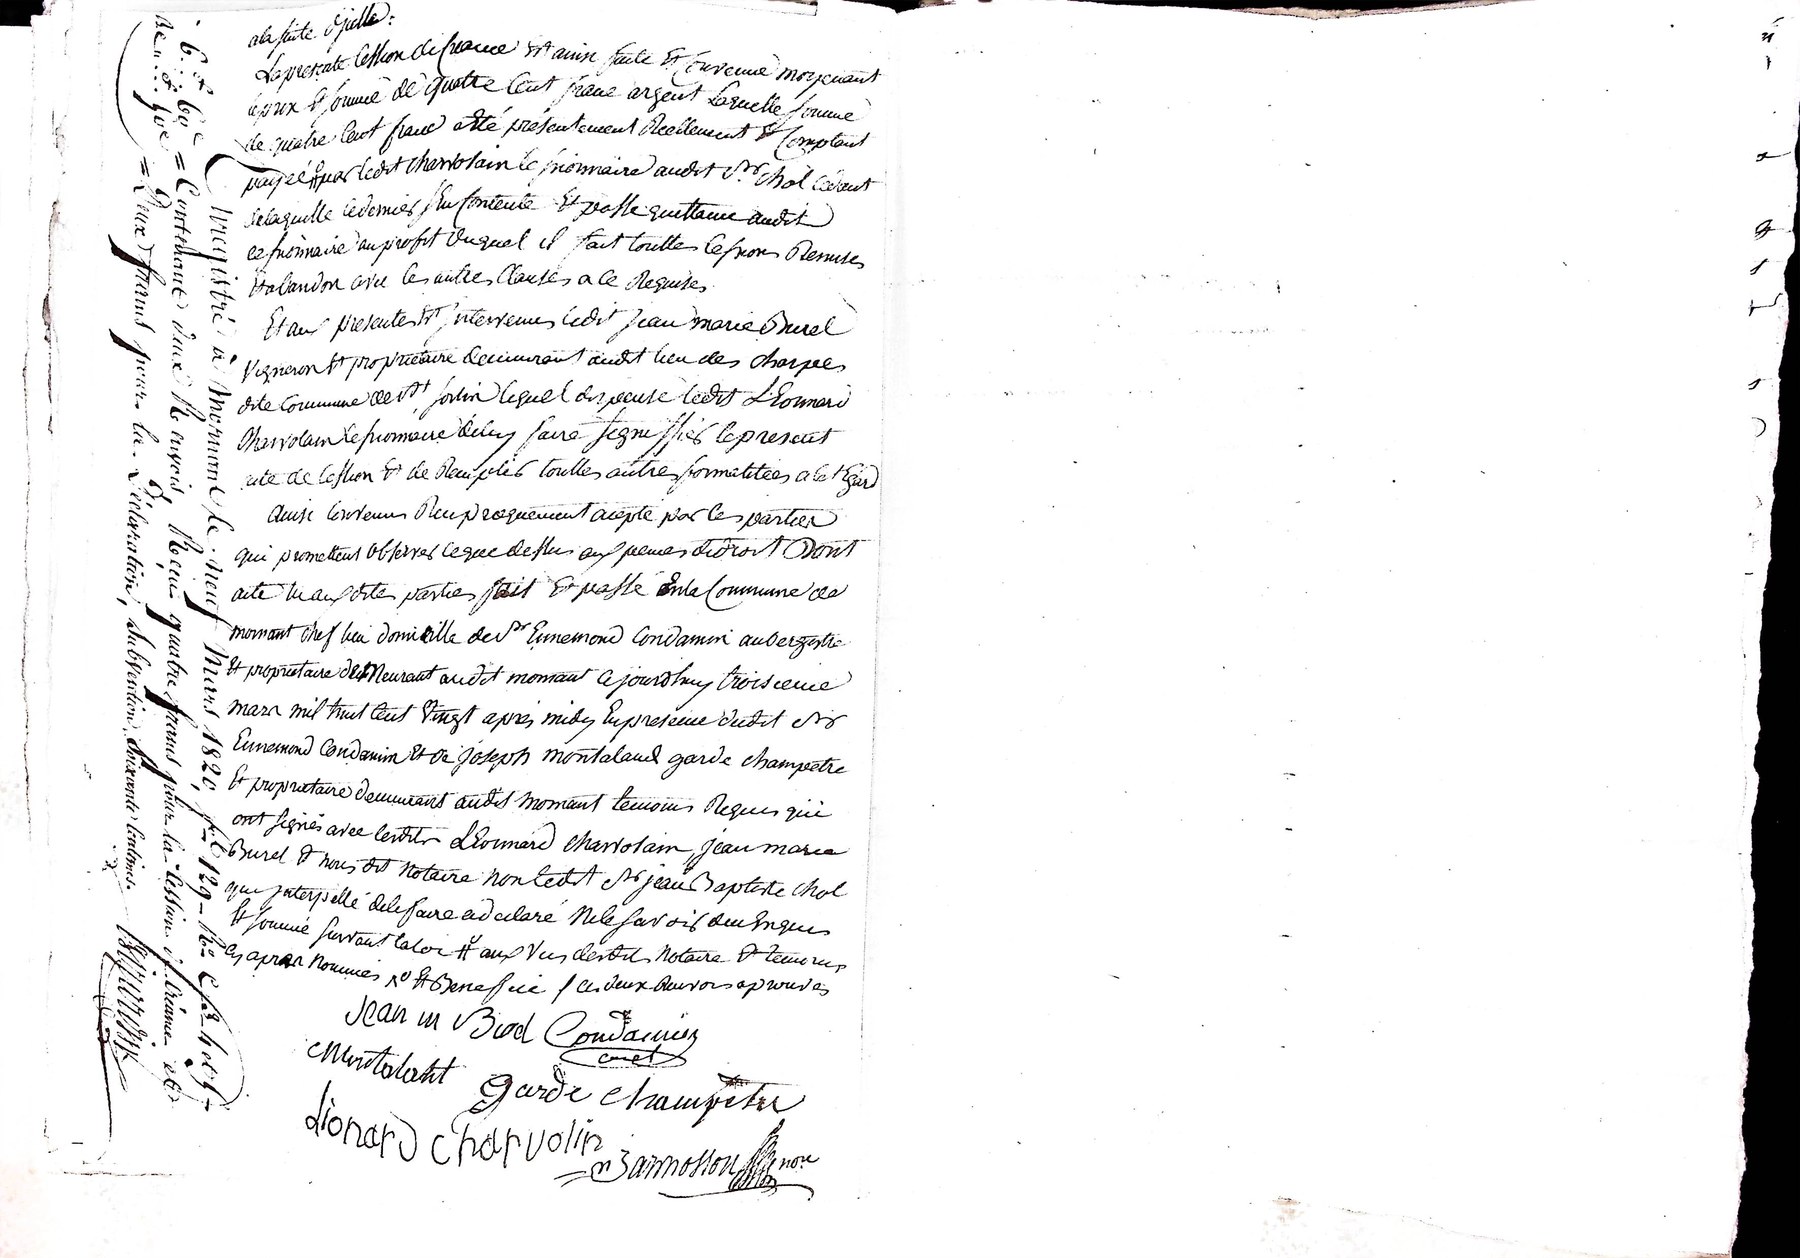 a la suite d'jcelle:
La presente Cession de creance Est ainsi faite Et Convenue moyenant
le prix Et somme de quatre Cent franc argent Laquelle somme
de quatre Cent franc a Eté présentement Reellement Et Comptant
payéé par ledit charvolain Cessionnaire audit Sr. chol Cédant
de laquelle ce dernier Contente Et passe quittance audit
cessionnaire au profit duquel il fait touttes Cessions Remises
Et abandon avec les autres Clauses a ce Requises.
Et aux presentes Est jntervenus ledit jean marie Burel
Vigneron Et proprietaire demeurant audit lieu des charpes
dite Commune de St. sorlin lequel dispense ledit LEonnard
Charvolain Cessionnaire de luy faire signiffier le present
acte de Cession Et de Remplir touttes autres formalitées a cet Egard
Ainsi Convenus Reciproquement acepté par les parties
qui promettent observer ce que dessus aux peines de droit Dont
acte Lu aux dites parties fait Et passé En la Commune de
mornant chef lieu domicille de Sr Ennemond Condamin aubergiste
Et proprietaire demeurant audit mornant ce jourdhuy troisieme
mars mil huit Cent Vingt après midy En presence dudit Sr
Ennemond Condamin Et de joseph montaland garde champetre
Et proprietaire demeurant audit mornant temoins Requis qui
ont signés avec lesdits LEonnard charvolain, jean marie
Burel Et nous dit Notaire non ledit Sr jean Baptiste chol
que jnterpellé de le faire a déclaré Ne le savoir de ce Enquis
Et sommé suivant la loi aux Vus desdits Notaire Et temoins
Cy après nommés Et Benefice ces deux Renvois aprouvés
Jean m Burel Condamin
Montaland garde champetre
Lionard charvolin
Zarmosson nore
Enregistré à Mornant le neuf Mars 1820, fo 129
Contenant deux Renvois, Reçu quatre francs pour la Cession de Créance
Deux francs pour la Déclaration, subvention, soixante Centimes.